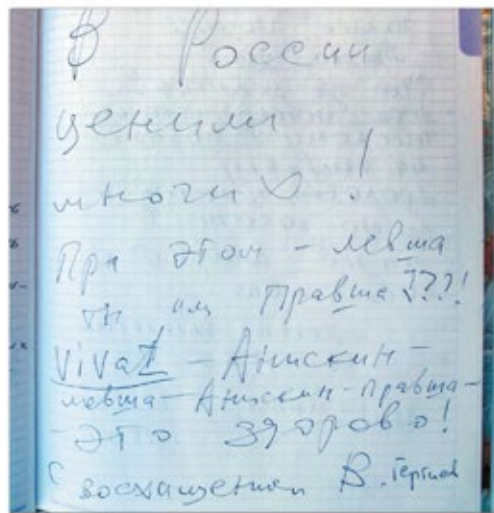 В России
ценили
многих!
При этом - левша
он или правша???!
Vivat - Анискин -
левша - Анискин - правша -
- это здорово!
С восхищением В.